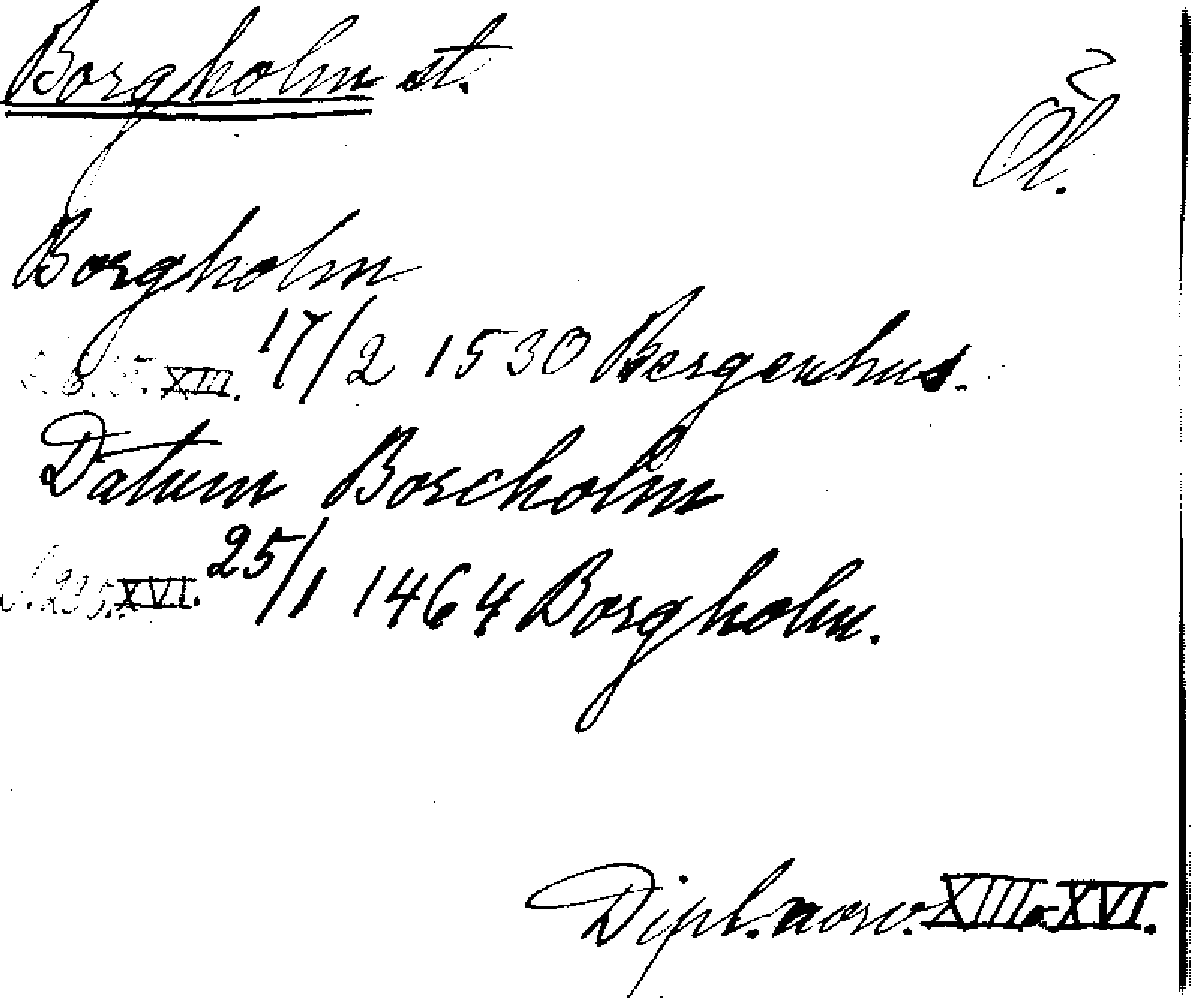 Borgholm st.
Öl.
Borgholm
XIII. 17/2 1530 Bergenhus.
Datum Borcholm
S. 235. XVI. 25/1 1464 Borgholm.
Dipl. norv. XIII o. XVI.